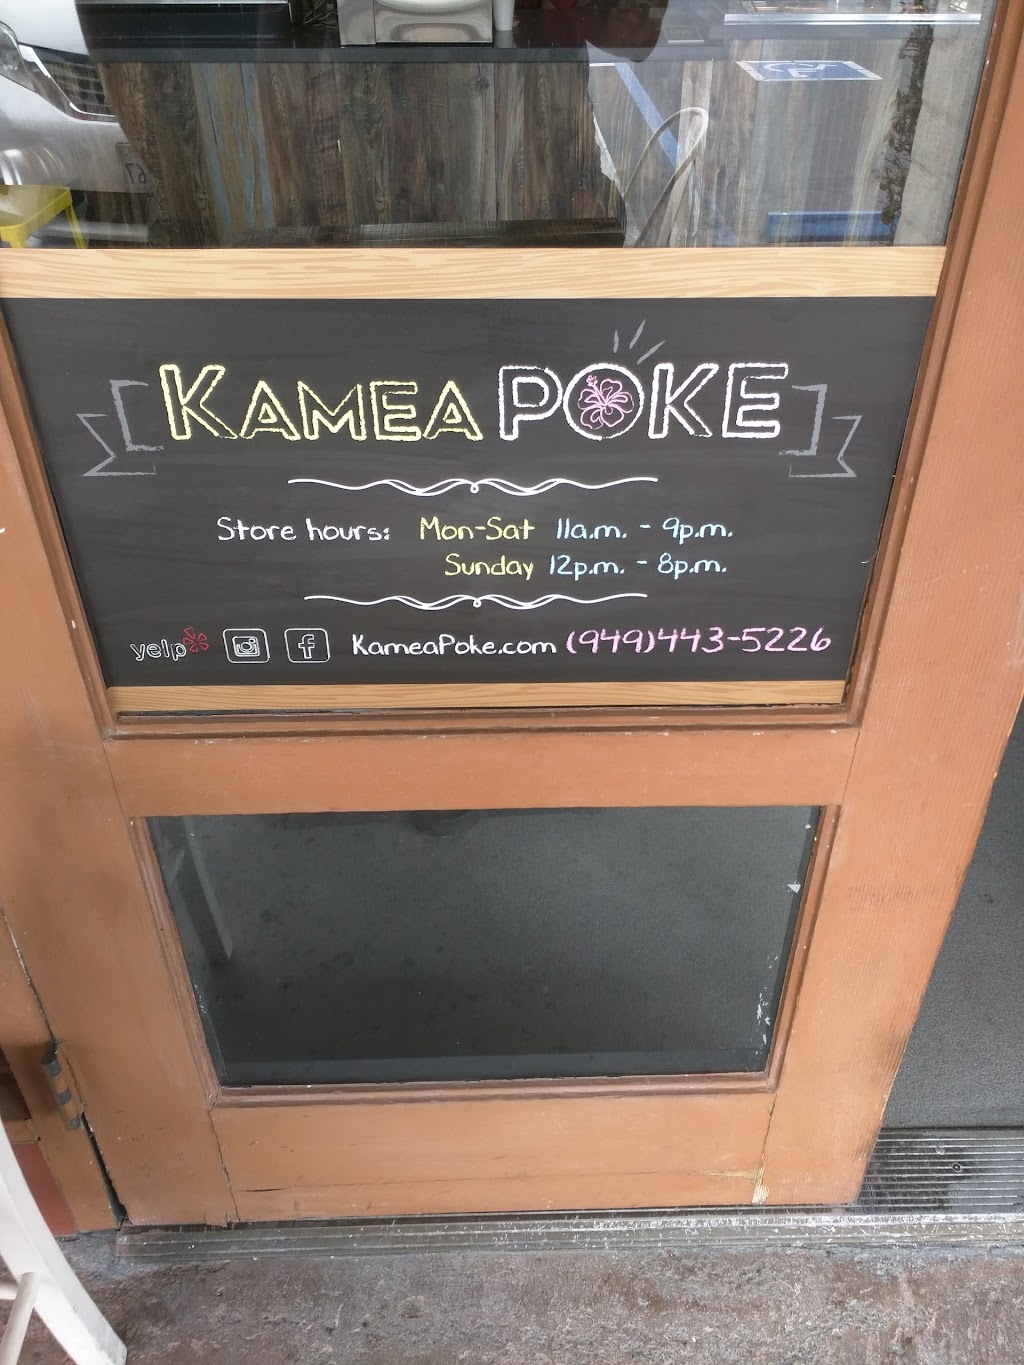 KAMEA POKE
Store hours: Mon-Sat 11a.m. - 9p.m.
Sunday 12p.m. - 8p.m.
yelp f KameaPoke.com (949)443-5226